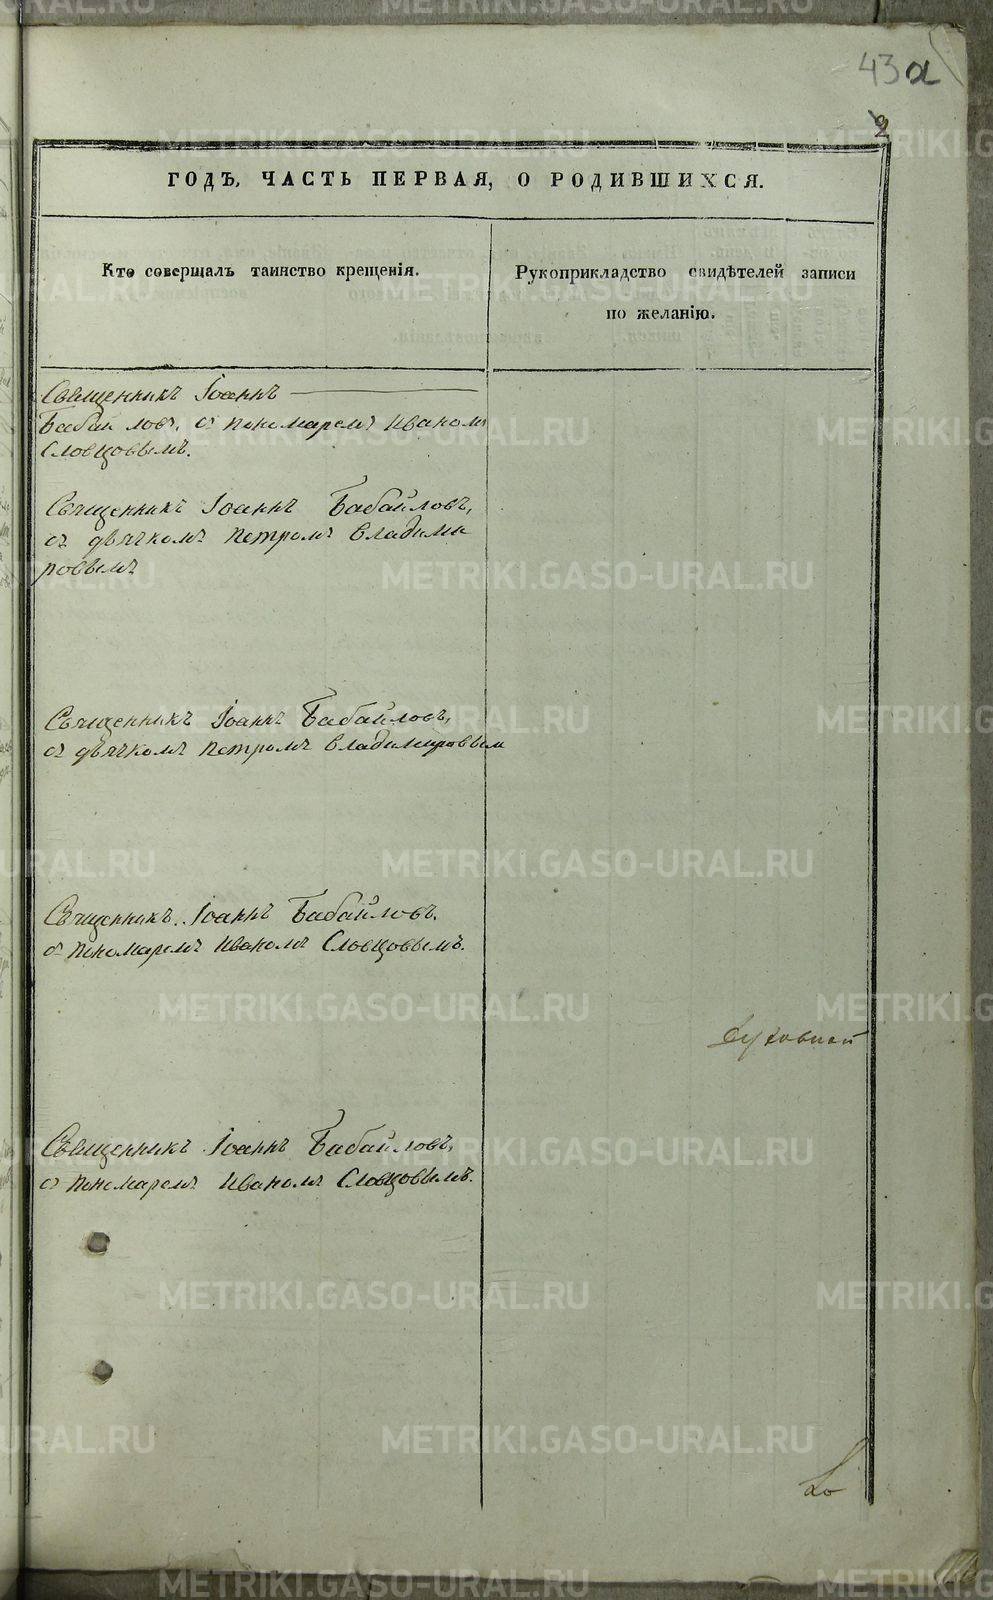 43а
2
ГОДЪ, ЧАСТЬ ПЕРВАЯ, О РОДИВШИХСЯ.
Кто совершалъ таинство крещенія.
Рукоприкладство свидѣтелей записи
по желанію.
Священникъ Іоаннъ
Бабайловъ, съ пономаремъ Иваномъ
Словцовымъ.
Священникъ Іоаннъ Бабайловъ,
съ дьячкомъ Петромъ Владими
ровымъ
Священникъ Іоаннъ Бабайловъ,
съ дьячкомъ Петромъ Владимироввым
Священникъ Іоаннъ Бабайловъ.
съ пономаремъ Иваномъ Словцовымъ.
Духовной
Священникъ Іоаннъ Бабайловъ,
съ пономаремъ Иваномъ Словцовымъ.
METRIKI.GASO-URAL.RU